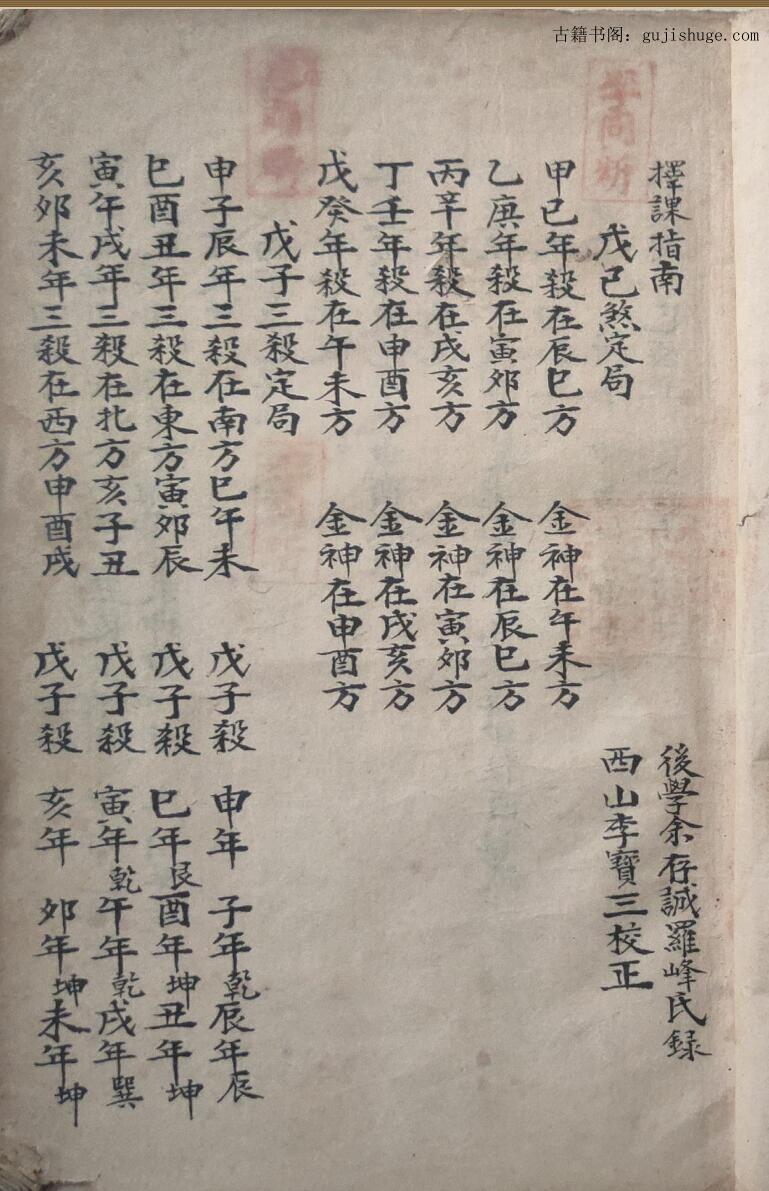 古籍书阁：gujishuge.com
擇課指南
後學余存誠羅峰氏録
戊己煞定局
西山李寶三校正
甲己年殺在辰巳方 金神在午未方
乙庚年殺在寅卯方 金神在辰巳方
丙辛年殺在戌亥方 金神在寅卯方
丁壬年殺在申酉方 金神在戌亥方
戊癸年殺在午未方 金神在申酉方
戊子三殺定局
申子辰年三殺在南方巳午未 戊子殺 申年 子年乾 辰年辰
巳酉丑年三殺在東方寅卯辰 戊子殺 巳年艮 酉年坤 丑年坤
寅午戌年三殺在北方亥子丑 戊子殺 寅年乾 午年乾 戌年巽
亥卯未年三殺在西方申酉戌 戊子殺 亥年 卯年坤 未年坤